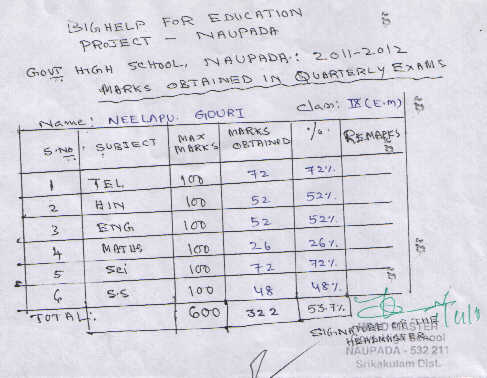 BIGHELP FOR EDUCATION
PROJECT - NAUPADA
GOVT HIGH SCHOOL, NAUPADA: 2011-2012
MARKS OBTAINED IN QUARTERLY EXAMS
Name: NEELAPU. GOURI Class: IX (E.m)
S.No SUBJECT MAX MARKS MARKS OBTAINED % REMARKS
1 TEL 100 72 72%
2 HIN 100 52 52%
3 ENG 100 52 52%
4 MATHS 100 26 26%
5 Sci 100 72 72%
6 S.S 100 48 48%
TOTAL: 600 322 53.7%
SIGNATURE OF THE
HEADMASTER
MASTER
School
NAUPADA - 532 211
Srikakulam Dist.